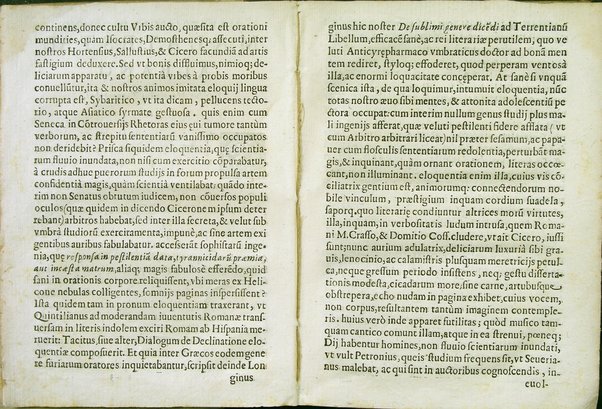 continens, donec cultu Vibis aucto, quæsita est orationi
mundities, quam Isocrates, Demosthenesq; assecuti, inter
nostros Hortensius, Sallustius, & Cicero facundiā ad artis
fastigium deduxere. Sed vt bonis diffluimus, nimioq; de-
liciarum apparatu, ac potentiâ vibes à probis moribus
conuellũtur, ita & nostros animos imitata eloquij lingua
corrupta est, Sybaritico, vt ita dicam, pellucens tecto-
rio, atque Asiatico syrmate gestuosa. quis enim cum
Seneca in Cõtrouersijs Rhetoras eius qui tumore tantùm
verborum, ac strepitu sententiarũ vanissimo occupatos
non deridebit? Prisca siquidem eloquentia, quę scientia-
rum fluuio inundata, non nisi cum exercitio cõparabatur,
à crudis adhuc puerorum studijs in forum propulsa artem
confidentiâ magis, quàm scientiâ ventilabat; quādo inte-
rim non Senatus obtutum iudicem, non cõuersos populi
oculos (quæ quidem in dicendo Ciceronem ipsum deter
rebant) arbitros habebat, sed inter illa secreta, & velut sub
vmbrâ studiorũ exercitamenta, impunè, ac sine artem exi
gentibus auribus fabulabatur. accesserāt sophistarũ inge-
nia, quę responsa in pestilentiā data, tyrannicidarũ præmia,
aut incæsta matrum, aliaq; magis fabulosè efferẽdo, quid
sani in orationis corpore reliquissent, vbi meras ex Heli-
cone nebulas colligentes, somnijs paginas inspersissent?
Ista quidem tam in pronum eloquentiam traxerant; vt
Quintilianus ad moderandam iuuentutis Romanæ trans-
uersam in literis indolem exciri Romam ab Hispania me-
ruerit: Tacitus, siue alter, Dialogum de Declinatione elo-
quentiæ composuerit. Et quia inter Græcos eodem gene
re furiarum oratores inquietabantur, scripsit deinde Lon
ginus
ginus hic noster De sublimi genere dicẽdi ad Terrentianũ
Libellum, efficacē sanè, ac rei literariæ perutilem; quo ve
luti Anticyre pharmaco vmbraticus doctor ad bonā men
tem rediret, styloq; effoderet, quod perperam ventosâ
illâ, ac enormi loquacitate concęperat. At sanè si vnquā
scenica ista, de qua loquimur, intumuit eloquentia, nũc
totas nostro ęuo sibi mentes, & attonita adolescentiũ pe
ctora occupat: cum interim nullum genus studij plus ma
li ingenijs afferat, quæ veluti pestilenti sidere afflata (vt
cum Arbitro arbitrari liceat) nil præter sesamum, ac papa-
uer cum flosculis sententiarum redolentia, perturbāt ma
gis, & inquinant, quàm ornant orationem, literas occœ-
cant, non illuminant. eloquentia enim illa, cuius vis cõ-
ciliatrix gentium est, animorumq; connectendorum no-
bile vinculum, præstigium inquam cordium suadela,
saporq. quo literarię condiuntur altrices morũ virtutes,
illa, inquam, in verbositatis ludum intrusa, quem Romæ
à M. Crasso, & Domitio Coss. cludere, vt ait Cicero, iussi
sunt; nunc aurium adulatrix, deliciarum luxuriâ sibi gra-
uis, lenocinio, ac calamistris plusquam meretricijs petul-
ca, neque gressum periodo insistens, neq; gestu dicerta-
tionis modesta, cicadarum more, sine carne, artubusque
obstrepera, echo nudam in pagina exhibet, cuius vocem,
non corpus, resultantem tantùm imaginem contemple-
ris. huius verò inde apparet futilitas; quòd musico tam-
quam cantico comunt illam, atque in ea strenui, pœneq;
Dij habentur homines, non fluuio scientiarum inundati,
vt vult Petronius, queis studium frequens sit, vt Seueria-
nus malebat, ac qui sint in auctoribus cognoscendis, in-
euol-